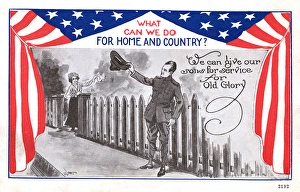 WHAT
CAN WE DO
FOR HOME AND COUNTRY?
We can give our
sons for service
for
Old Glory
2192